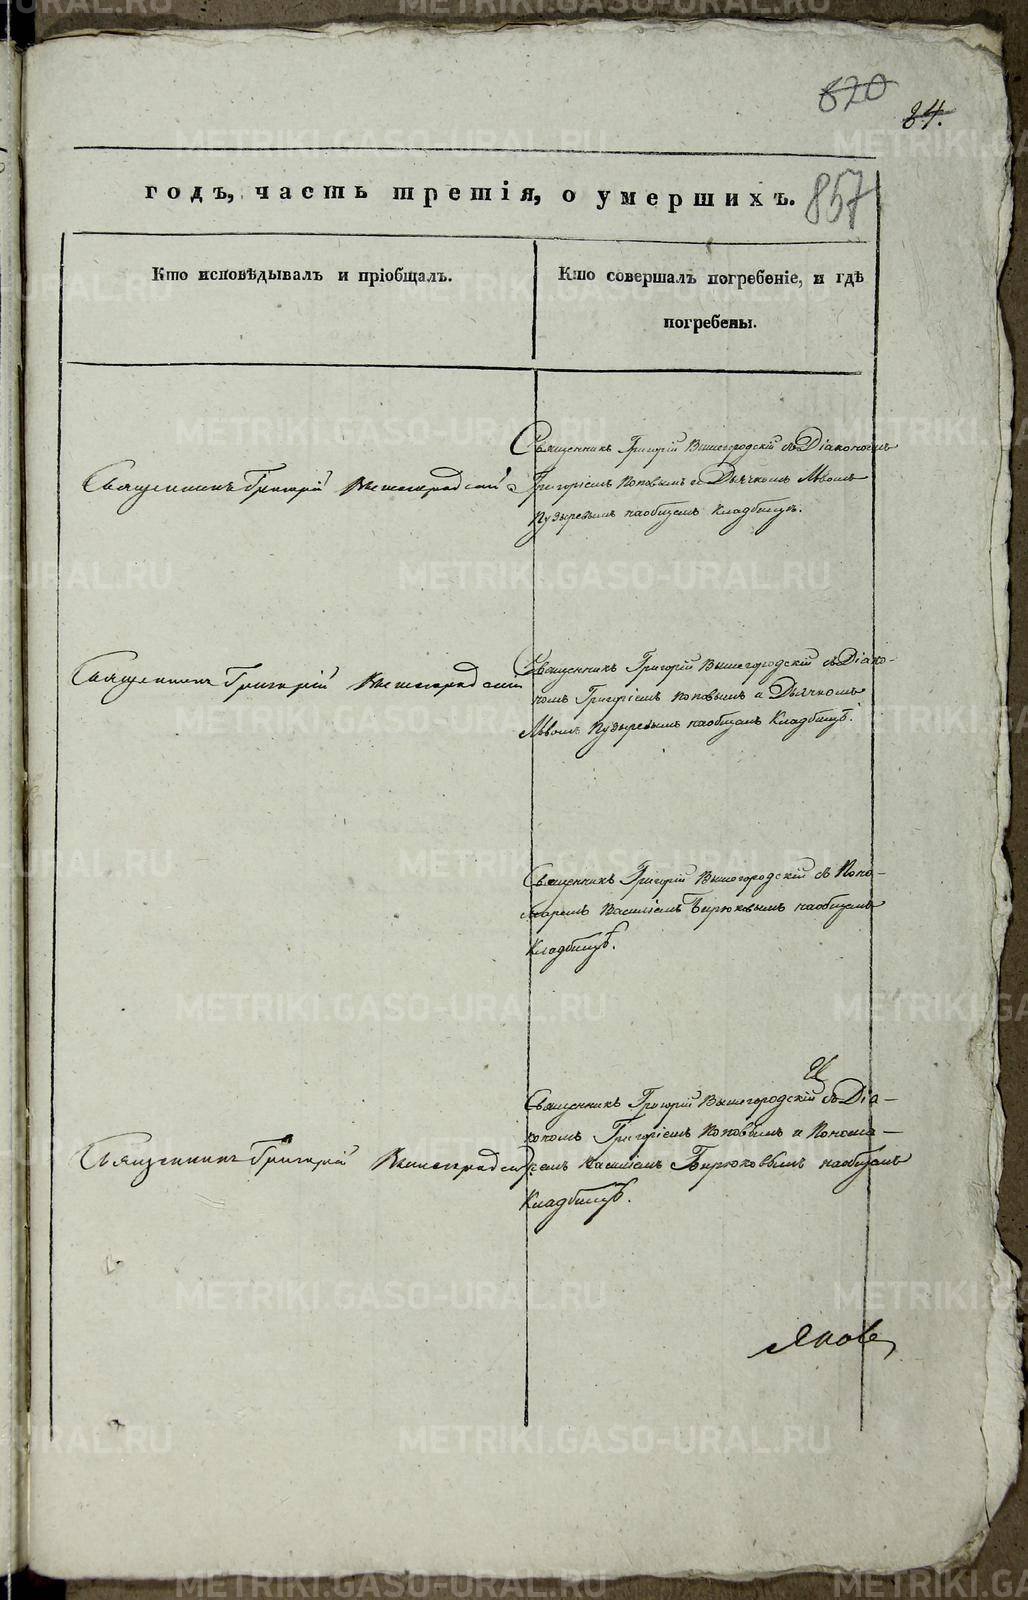 620
84.
857
годъ, часть третія, о умершихъ.
Кто исповѣдывалъ и пріобщалъ.
Кто совершалъ погребеніе, и гдѣ
погребены.
Священникъ Григорій Вышегородскій
Священникъ Григорій Вышегородскій съ Діакономъ
Григоріемъ Поповымъ и Дьячкомъ Львомъ
Пузыревымъ наобщемъ Кладбищѣ.
Священникъ Григорій Вышегородскій
Священникъ Григорій Вышегородскій съ Діако-
номъ Григоріемъ Поповымъ и Дьячкомъ
Львомъ Пузыревымъ наобщемъ Кладбищѣ.
Священникъ Григорій Вышегородскій съ Поно-
маремъ Василіемъ Бирюковымъ наобщемъ
Кладбищѣ.
Священникъ Григорій Вышегородскій
Священникъ Григорій Вышегородскій съ Діа-
кономъ Григоріемъ Поповымъ и Понома-
ремъ Василіемъ Бирюковымъ наобщемъ
Кладбищѣ.
Яковъ
METRIKI.GASO-URAL.RU